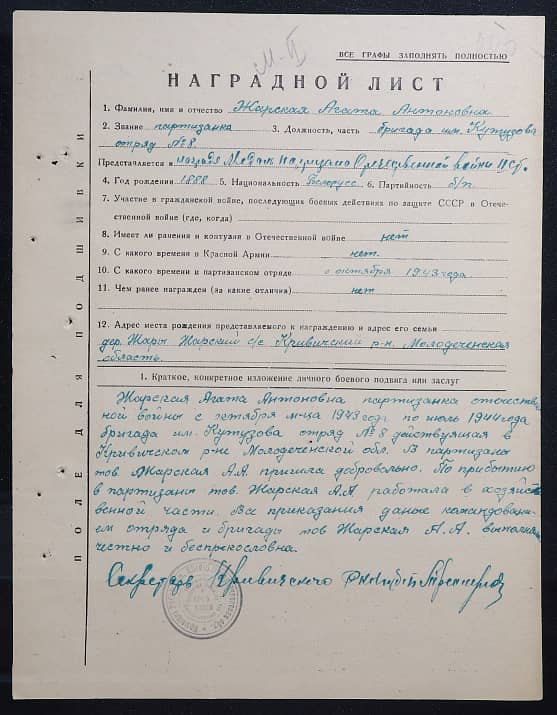 М-II
ВСЕ ГРАФЫ ЗАПОЛНЯТЬ ПОЛНОСТЬЮ
НАГРАДНОЙ ЛИСТ
1. Фамилия, имя и отчество Жарская Агата Антоновна
2. Звание партизанка 3. Должность, часть бригада им. Кутузова
отряд №8.
Представляется к Медаль Отечественной войны II ст.
4. Год рождения 1888 5. Национальность Белорусс 6. Партийность б/п.
7. Участие в гражданской войне, последующих боевых действиях по защите СССР и Отече-
ственной войне (где, когда)
8. Имеет ли ранения и контузии в Отечественной войне нет
9. С какого времени в Красной Армии нет.
10. С какого времени в партизанском отряде с октября 1943 года
11. Чем ранее награжден (за какие отличия) нет
12. Адрес места рождения представляемого к награждению и адрес его семьи
дер. Жары Жарский с/с Кривичский р-н. Молодеченская
область.
1. Краткое, конкретное изложение личного боевого подвига или заслуг
Жарская Агата Антоновна партизанка отечестве
ной войны с октября м-ца 1943 год по июль 1944 года
бригада им. Кутузова отряд №8 действующая в
Кривичском р-не Молодеченской обл. В партизаны
тов Жарская А.А пришла добровольно. По прибытию
в партизаны тов. Жарская А.А работала в хозяйст
венной части. Все приказания даные командовани-
ем отряда и бригады тов Жарская А.А. выполняла
честно и беспрекословна.
Секретарь Кривичского
ПОЛЕ ДЛЯ ПОДШИВКИ